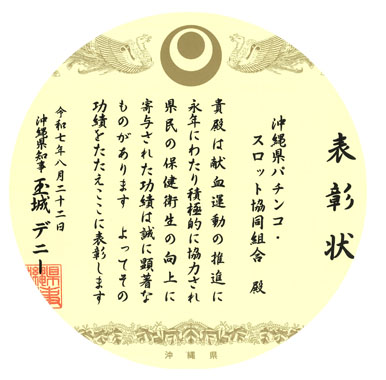 表彰状
沖縄県パチンコ・
スロット協同組合 殿
貴殿は献血運動の推進に
永年にわたり積極的に協力され
県民の保健衛生の向上に
寄与された功績は誠に顕著な
ものがあります よってその
功績をたたえここに表彰します
令和七年八月二十二日
沖縄県知事 玉城デニー
沖縄県